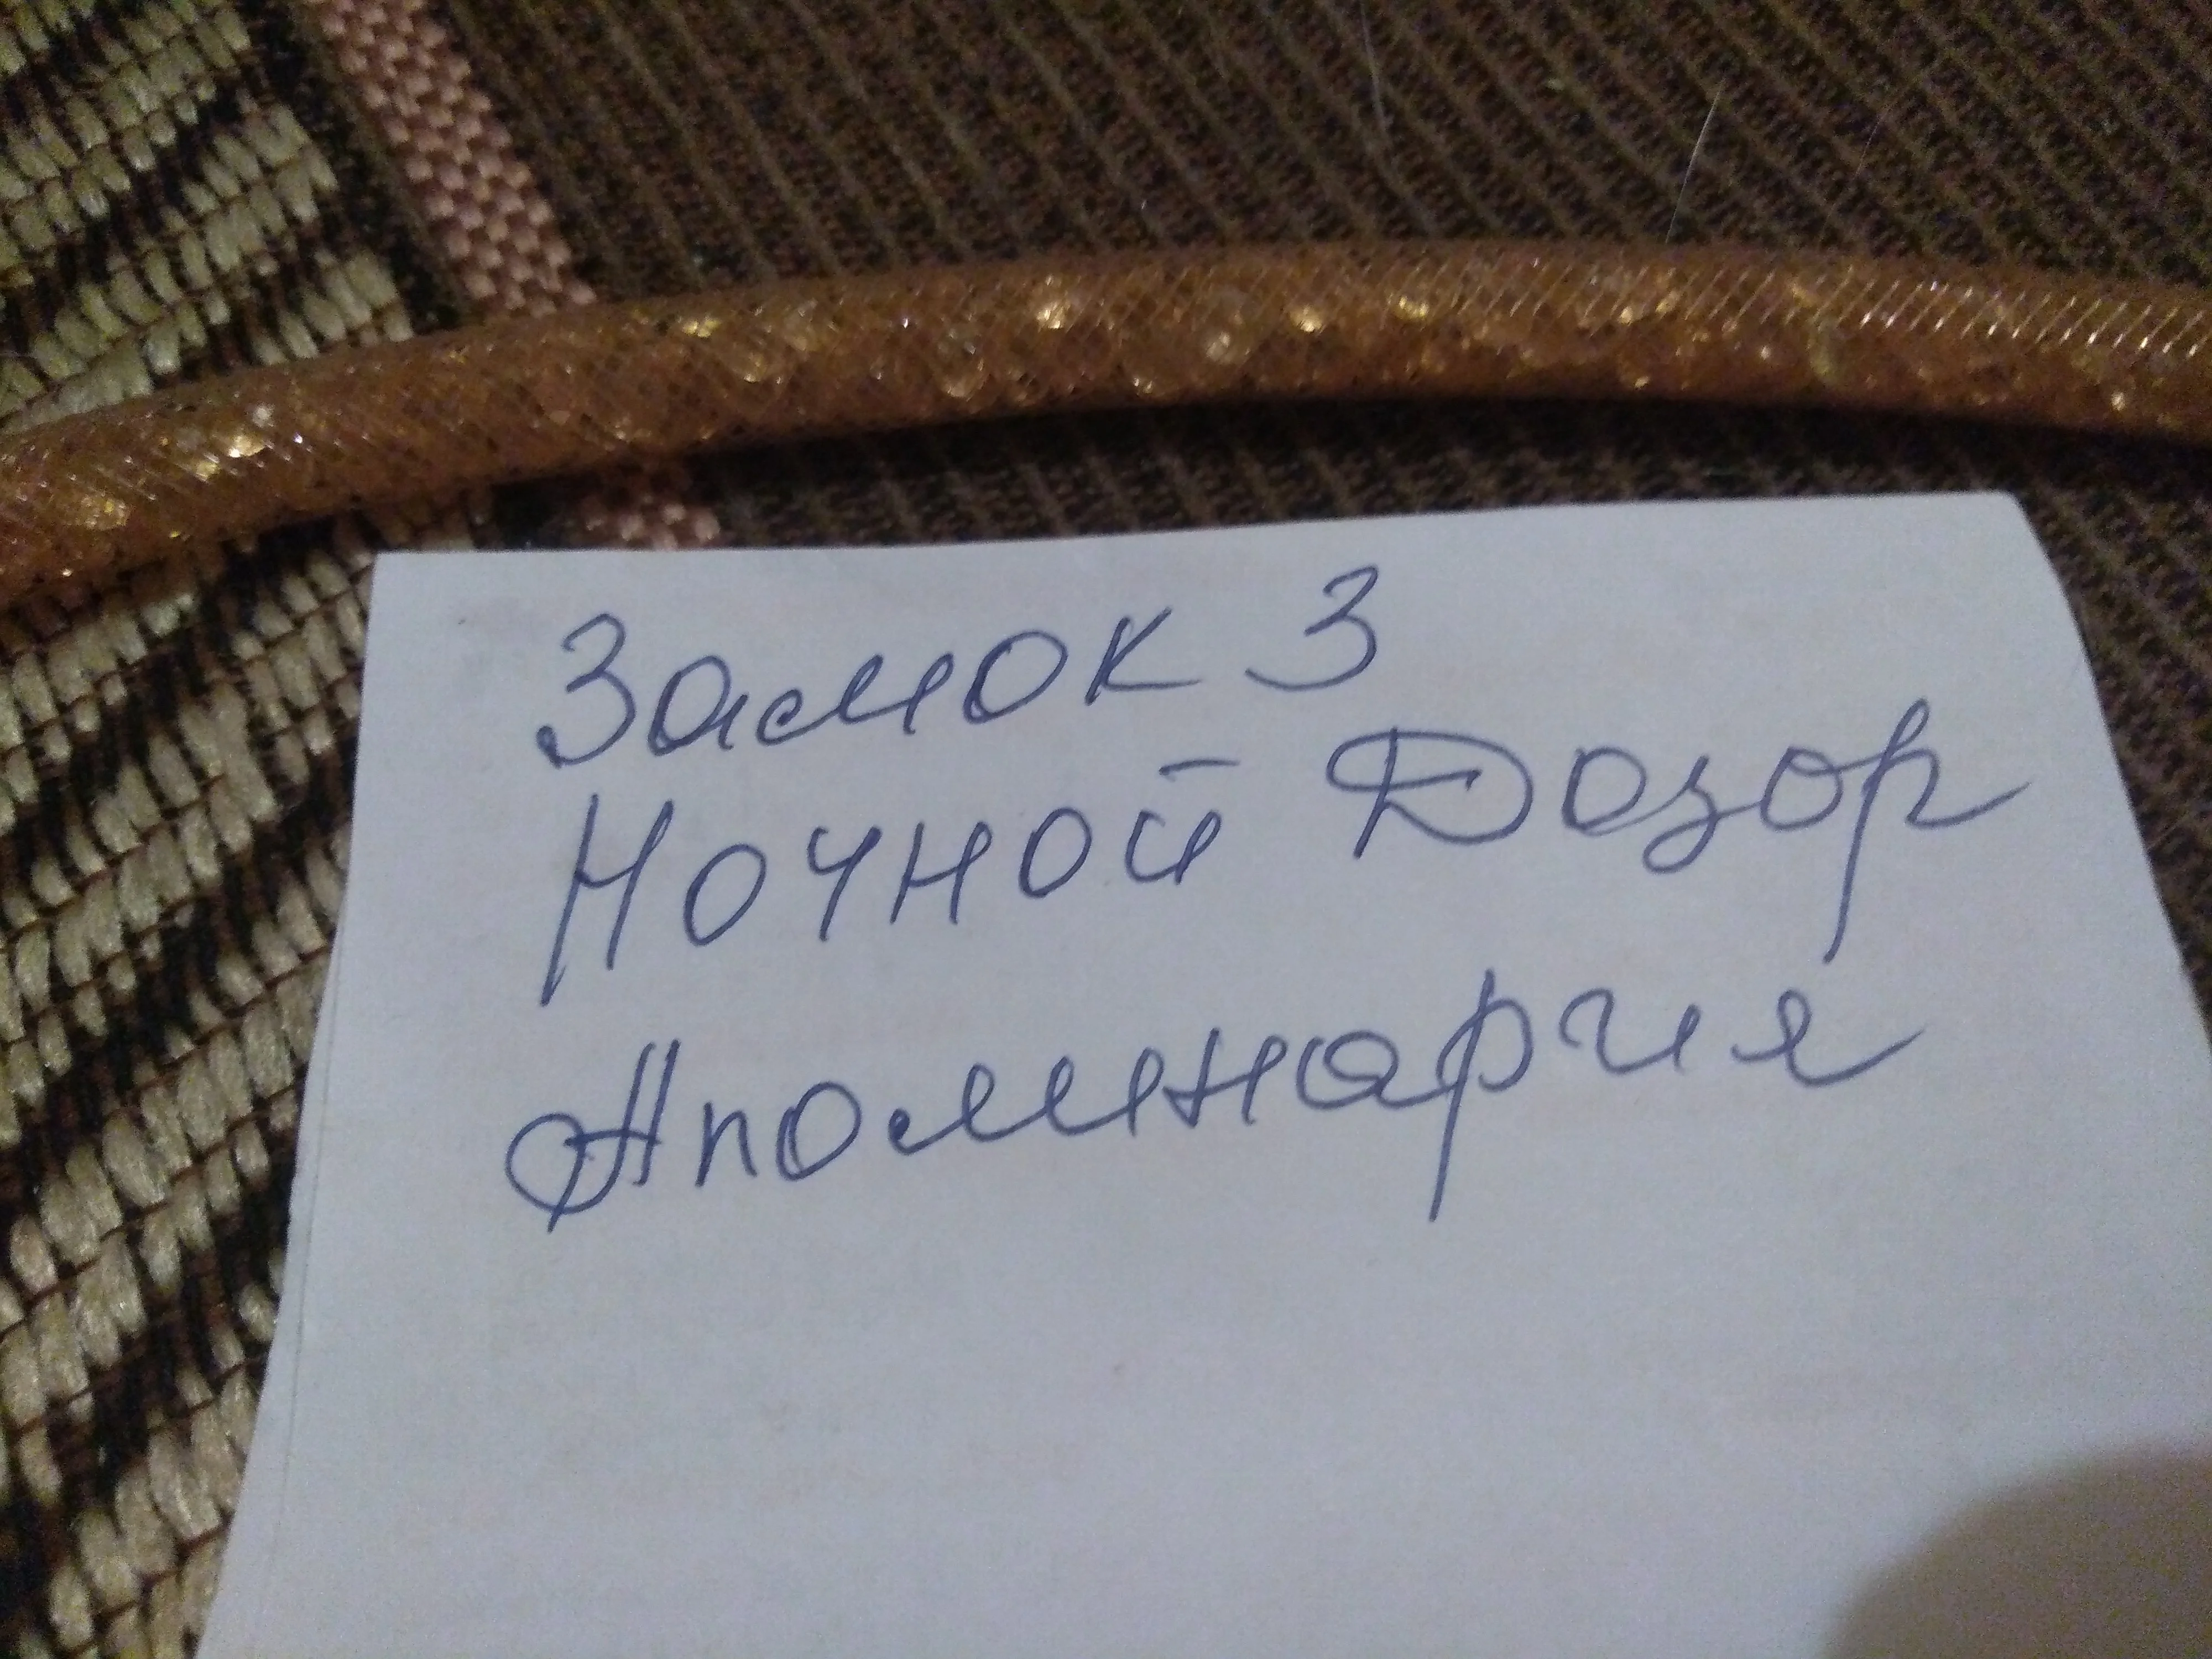 Замок 3
Ночной Дозор
Аполинария